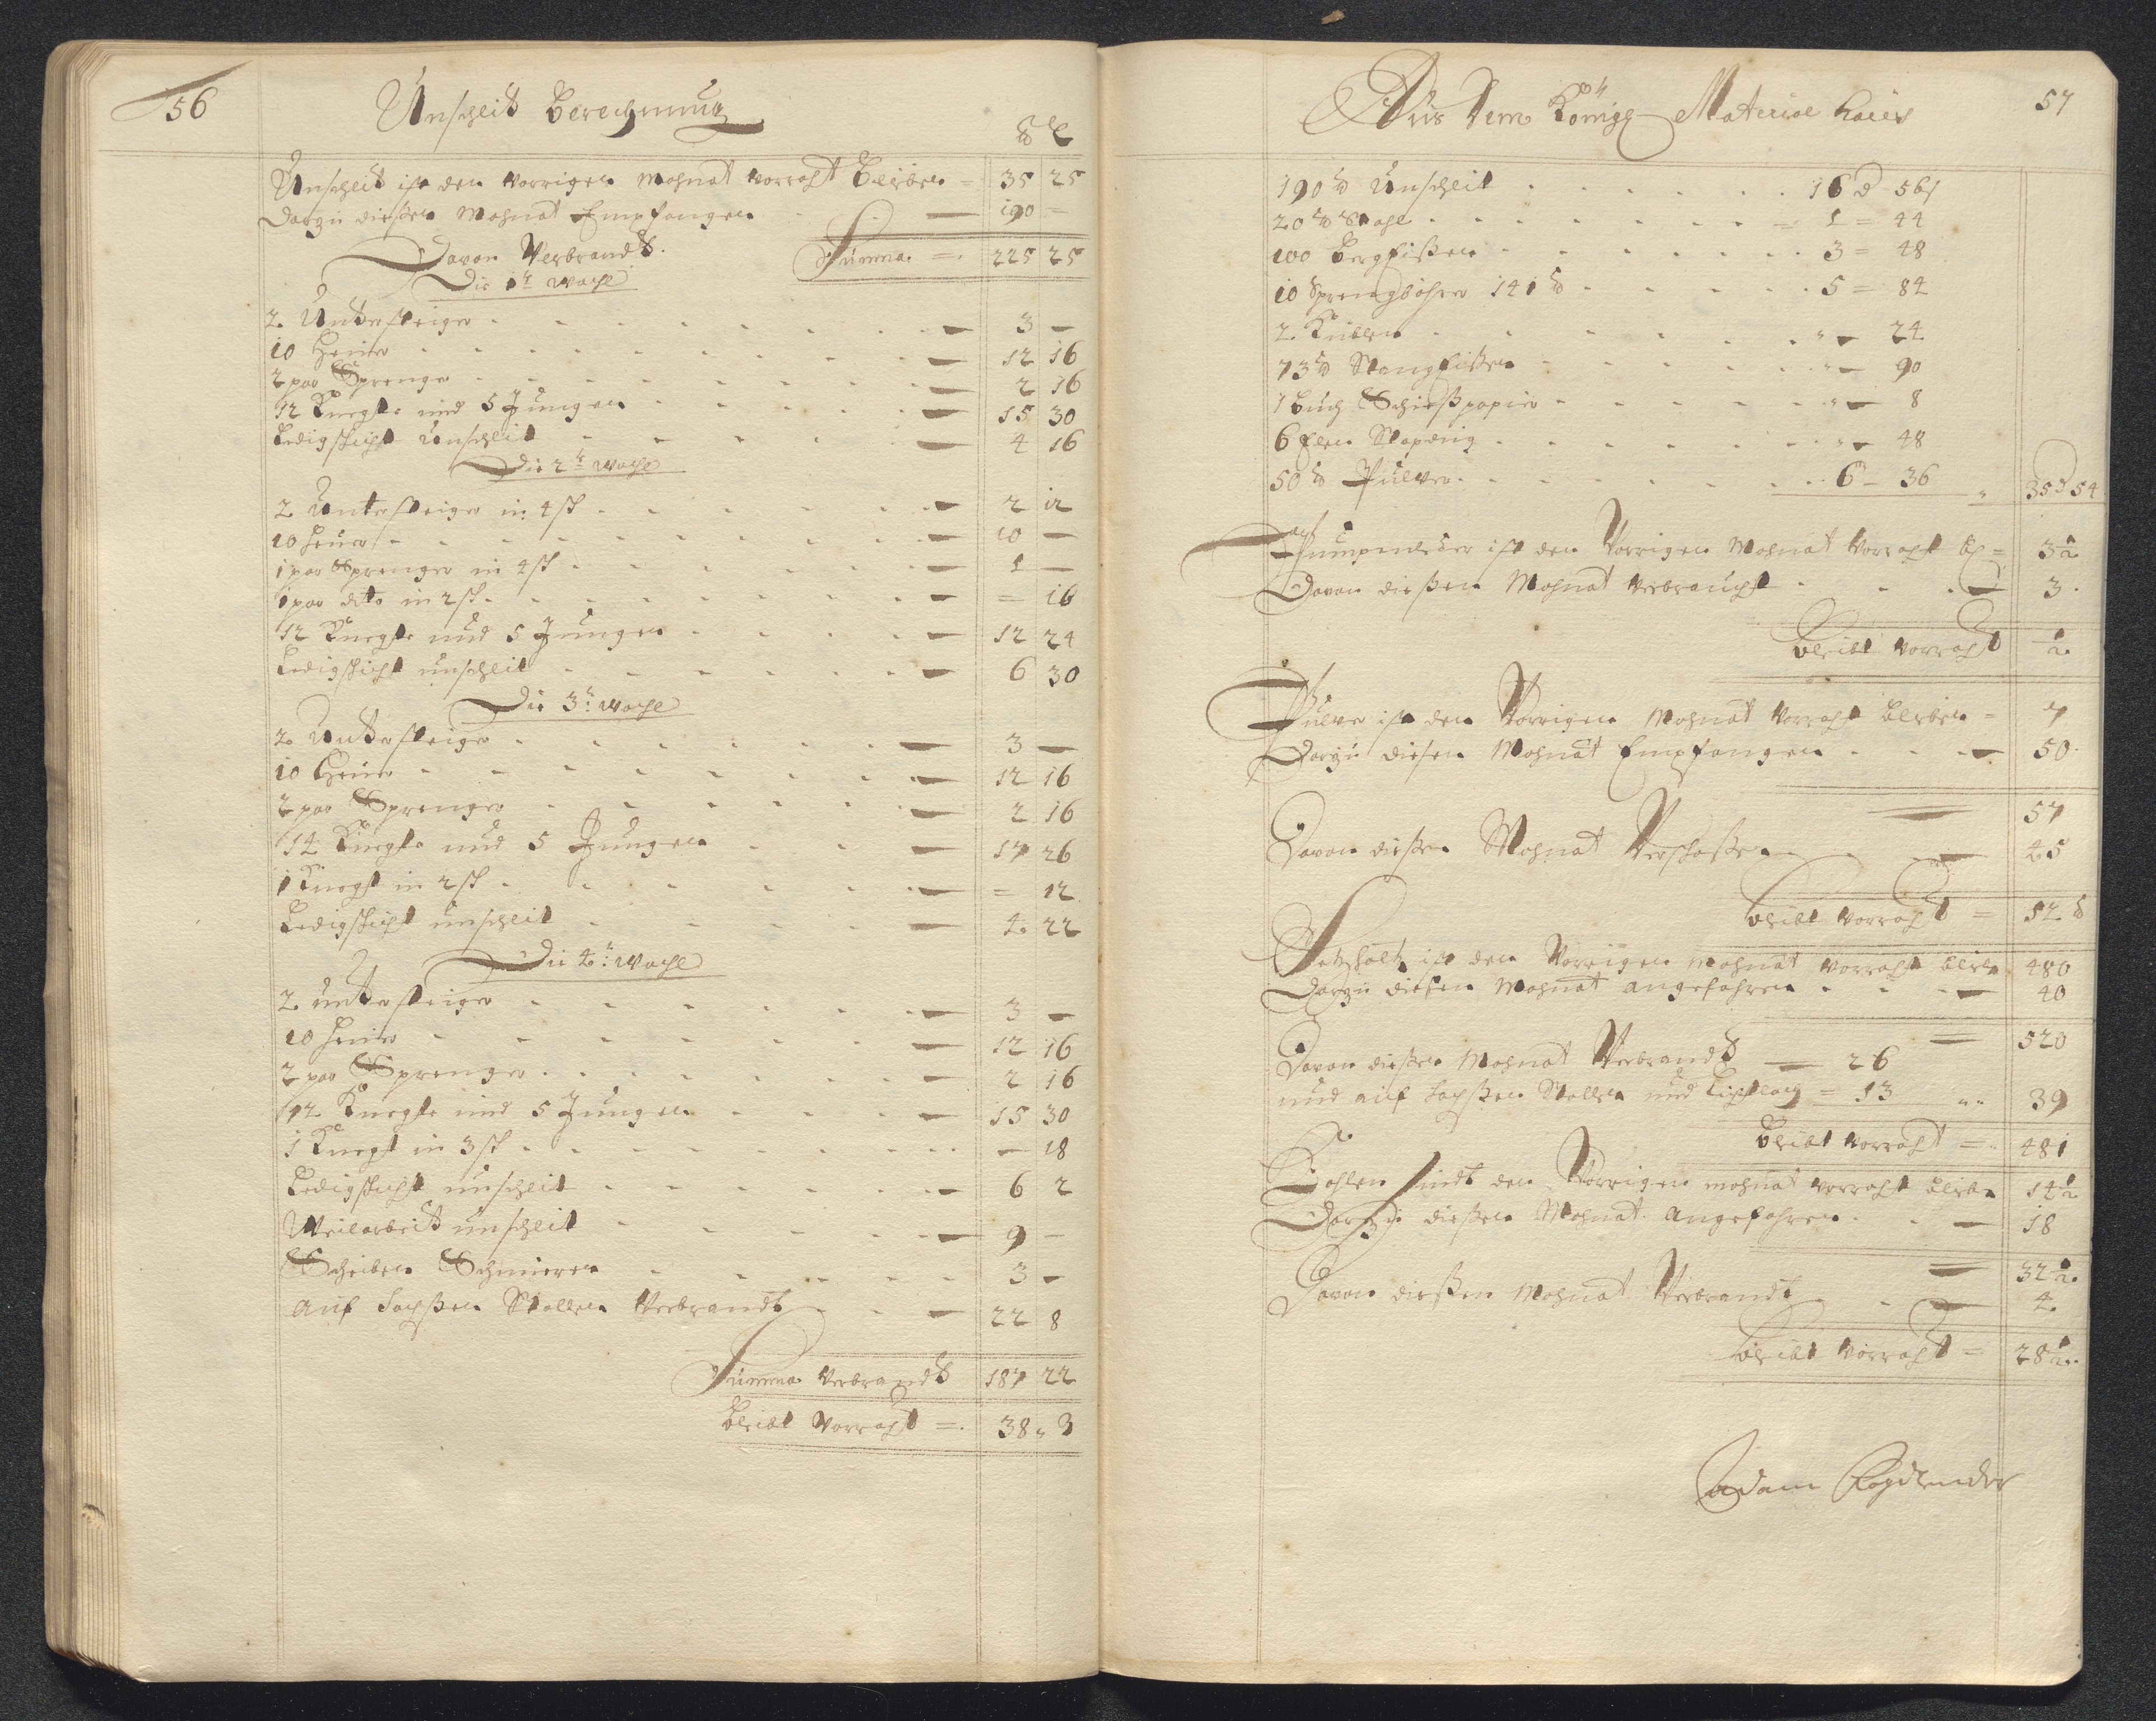 56
Unschlit Berechnung
℔ L
Unschlit ist den Vorrigen Mohnat Vorraht blieben = 35 25
Darzu dießen Mohnat Empfangen — 190 =
Summa = 225 25
Davon Verbrandt.
Die 1te Woche
2 Untersteiger — 3 —
10 Heüer — 12 16
2 par Sprenger — 2 16
12 Knechte und 5 Jungen — 15 30
Ledigschicht Unschlit — 4 16
Die 2te Woche
2 Untersteiger in 4 sch — 2 12
10 Heüer — 10 —
1 par Sprenger in 4 sch — 1 —
1 par dito in 2 sch — = 16
12 Knechte und 5 Jungen — 12 24
Ledigschicht unschlit — 6 30
Die 3te Woche
2 Untersteiger — 3 —
10 Heüer — 12 16
2 par Sprenger — 2 16
14 Knechte und 5 Jungen — 17 26
1 Knecht in 2 sch — = 12
Ledigschicht unschlit — 4 22
Die 4te Woche
2 untersteiger — 3 —
10 Heüer — 12 16
2 par Sprenger — 2 16
12 Knechte und 5 Jungen — 15 30
1 Knecht in 3 sch — 18
Ledigschicht unschlit — 6 2
Weilarbeit unschlit — 9 —
Scheiben Schmieren 3 —
auf Sachßen Stollen Verbrandt — 22 8
Summa Verbrandt 187 22
bleibt Vorraht = 38 " 3
57
Aus Dem Königl Material Haus
190 ℔ Unschlit 16 d 56 ß
20 ℔ Stahl = 1 = 44
100 Bergeißen 3 = 48
10 Sprengbohrer 141 ℔ 5 = 84
2 Kublen " — 24
73 ℔ Stangeißen " — 90
1 Buch Schießpapier " — 8
6 Elen " — 48
50 ℔ Pulver 6 — 36 " 35 d 54
Pumpenleder ist den Vorrigen Mohnat Vorraht bl = 3 1/2
Davon dießen Mohnat Verbraucht — 3
bleibt Vorraht 1/2
Pulver ist den Vorrigen Mohnat Vorraht blieben = 7
Darzu diesen Mohnat Empfangen — 50
57
Davon dießen Mohnat Verschoßen — 45
bleibt Vorraht = 12 ℔
Setzholtz ist den Vorrigen Mohnat Vorraht blieb 480
Darzu diesen Mohnat angefahren — 40
= 520
Davon dießen Mohnat Verbrandt — 26
und auf Sachßen Stollen und Lichtloch = 13 " 39
bleibt Vorraht = 481
Kohlen sindt den Vorrigen mohnat vorraht blieben 14 1/2
Darzu dießen Mohnat angefahren — 18
= 32 1/2
Davon dießen Mohnat Verbrandt — 4
bleibt Vorraht = 28 1/2
Adam